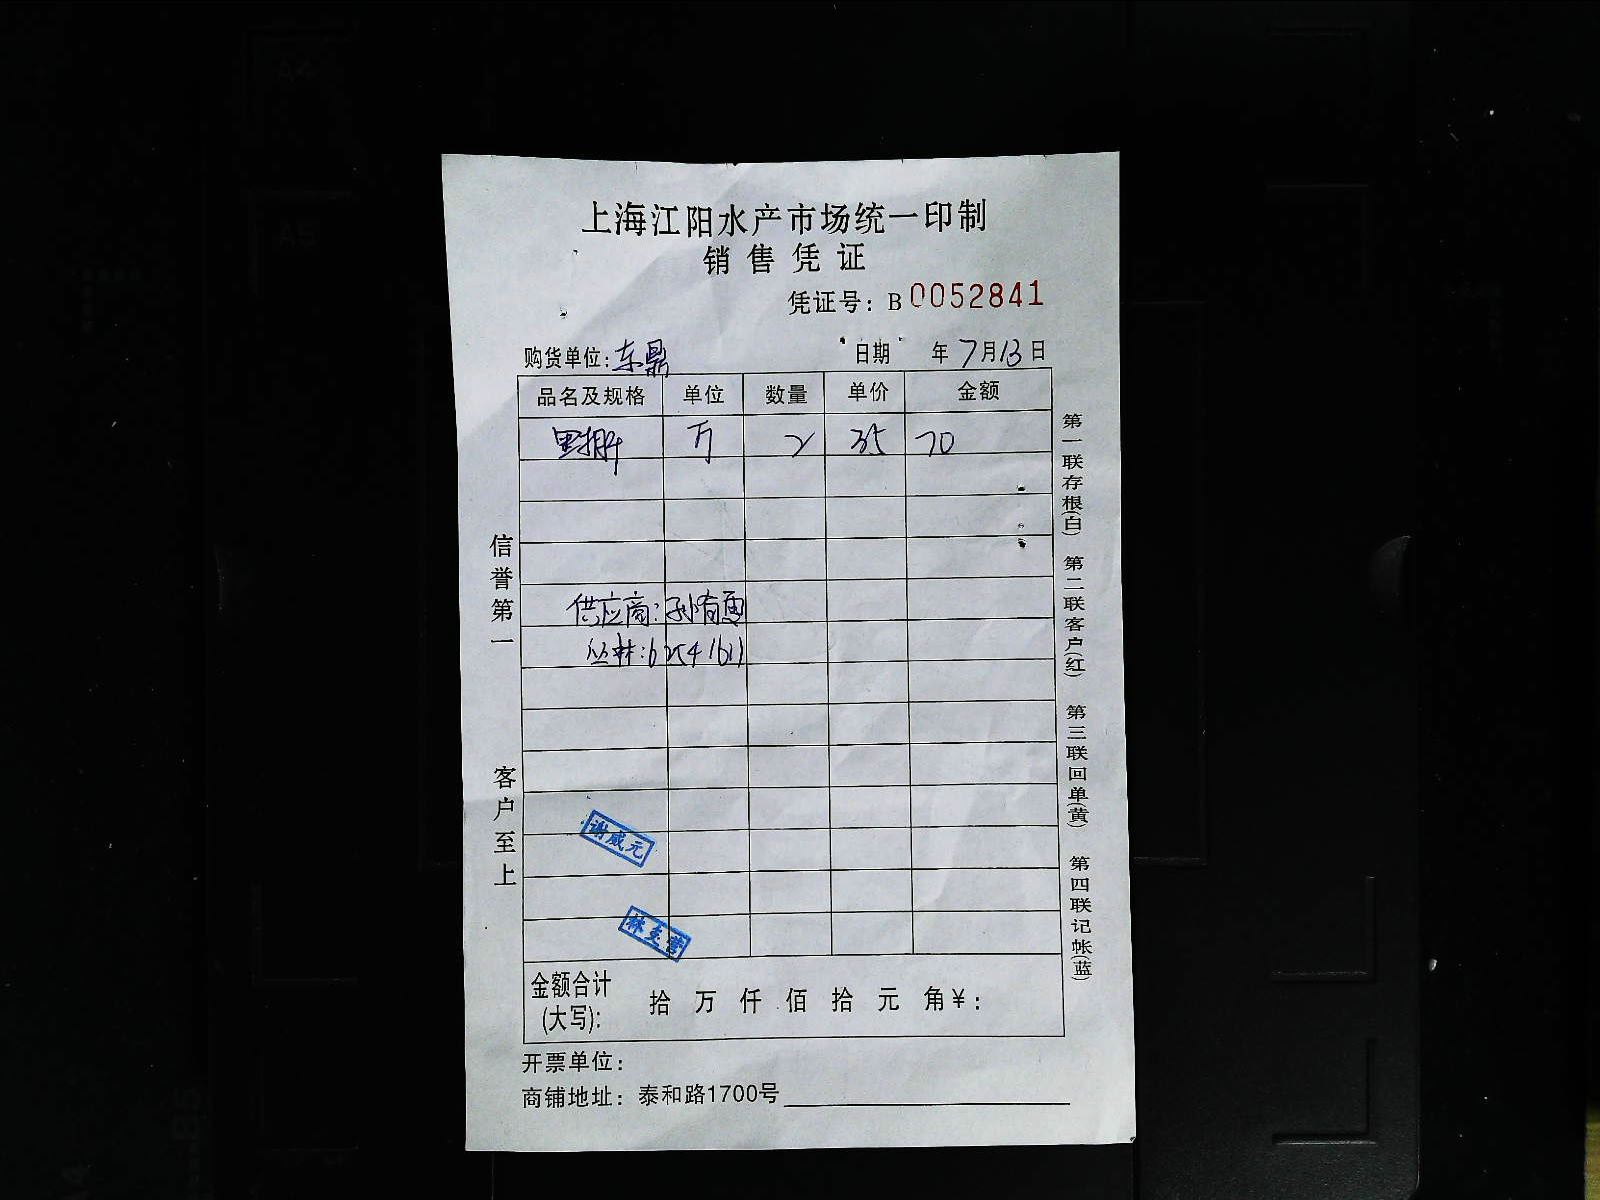 上海江阳水产市场统一印制
销售凭证
凭证号：B 0052841
购货单位：东鼎 日期 年 7月13日
品名及规格 单位 数量 单价 金额
2 35 70
供应商：孙有勇
丛林：62541611
谢咸元
林
金额合计(大写)： 拾 万 仟 佰 拾 元 角￥：
开票单位：
商铺地址：泰和路1700号
信誉第一 客户至上
第一联存根(白) 第二联客户(红) 第三联回单(黄) 第四联记帐(蓝)
A4
A5
B5